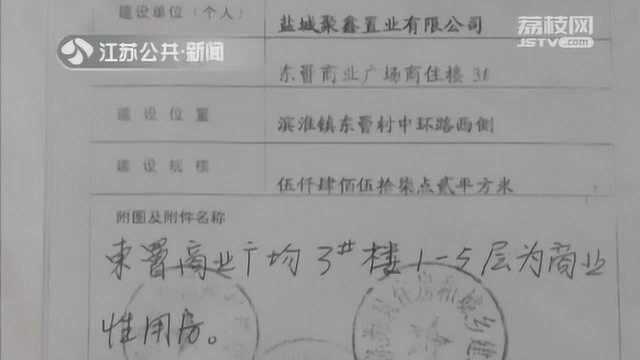 建设单位(个人)
盐城聚鑫置业有限公司
荔枝网
JSTV.com
江苏公共·新闻
东晋商业广场商住楼3#
建设位置
滨淮镇东晋村中环路西侧
建设规模
伍仟肆佰伍拾柒点贰平方米
附图及附件名称
东晋商业广场3#楼1-5层为商业
性用房。